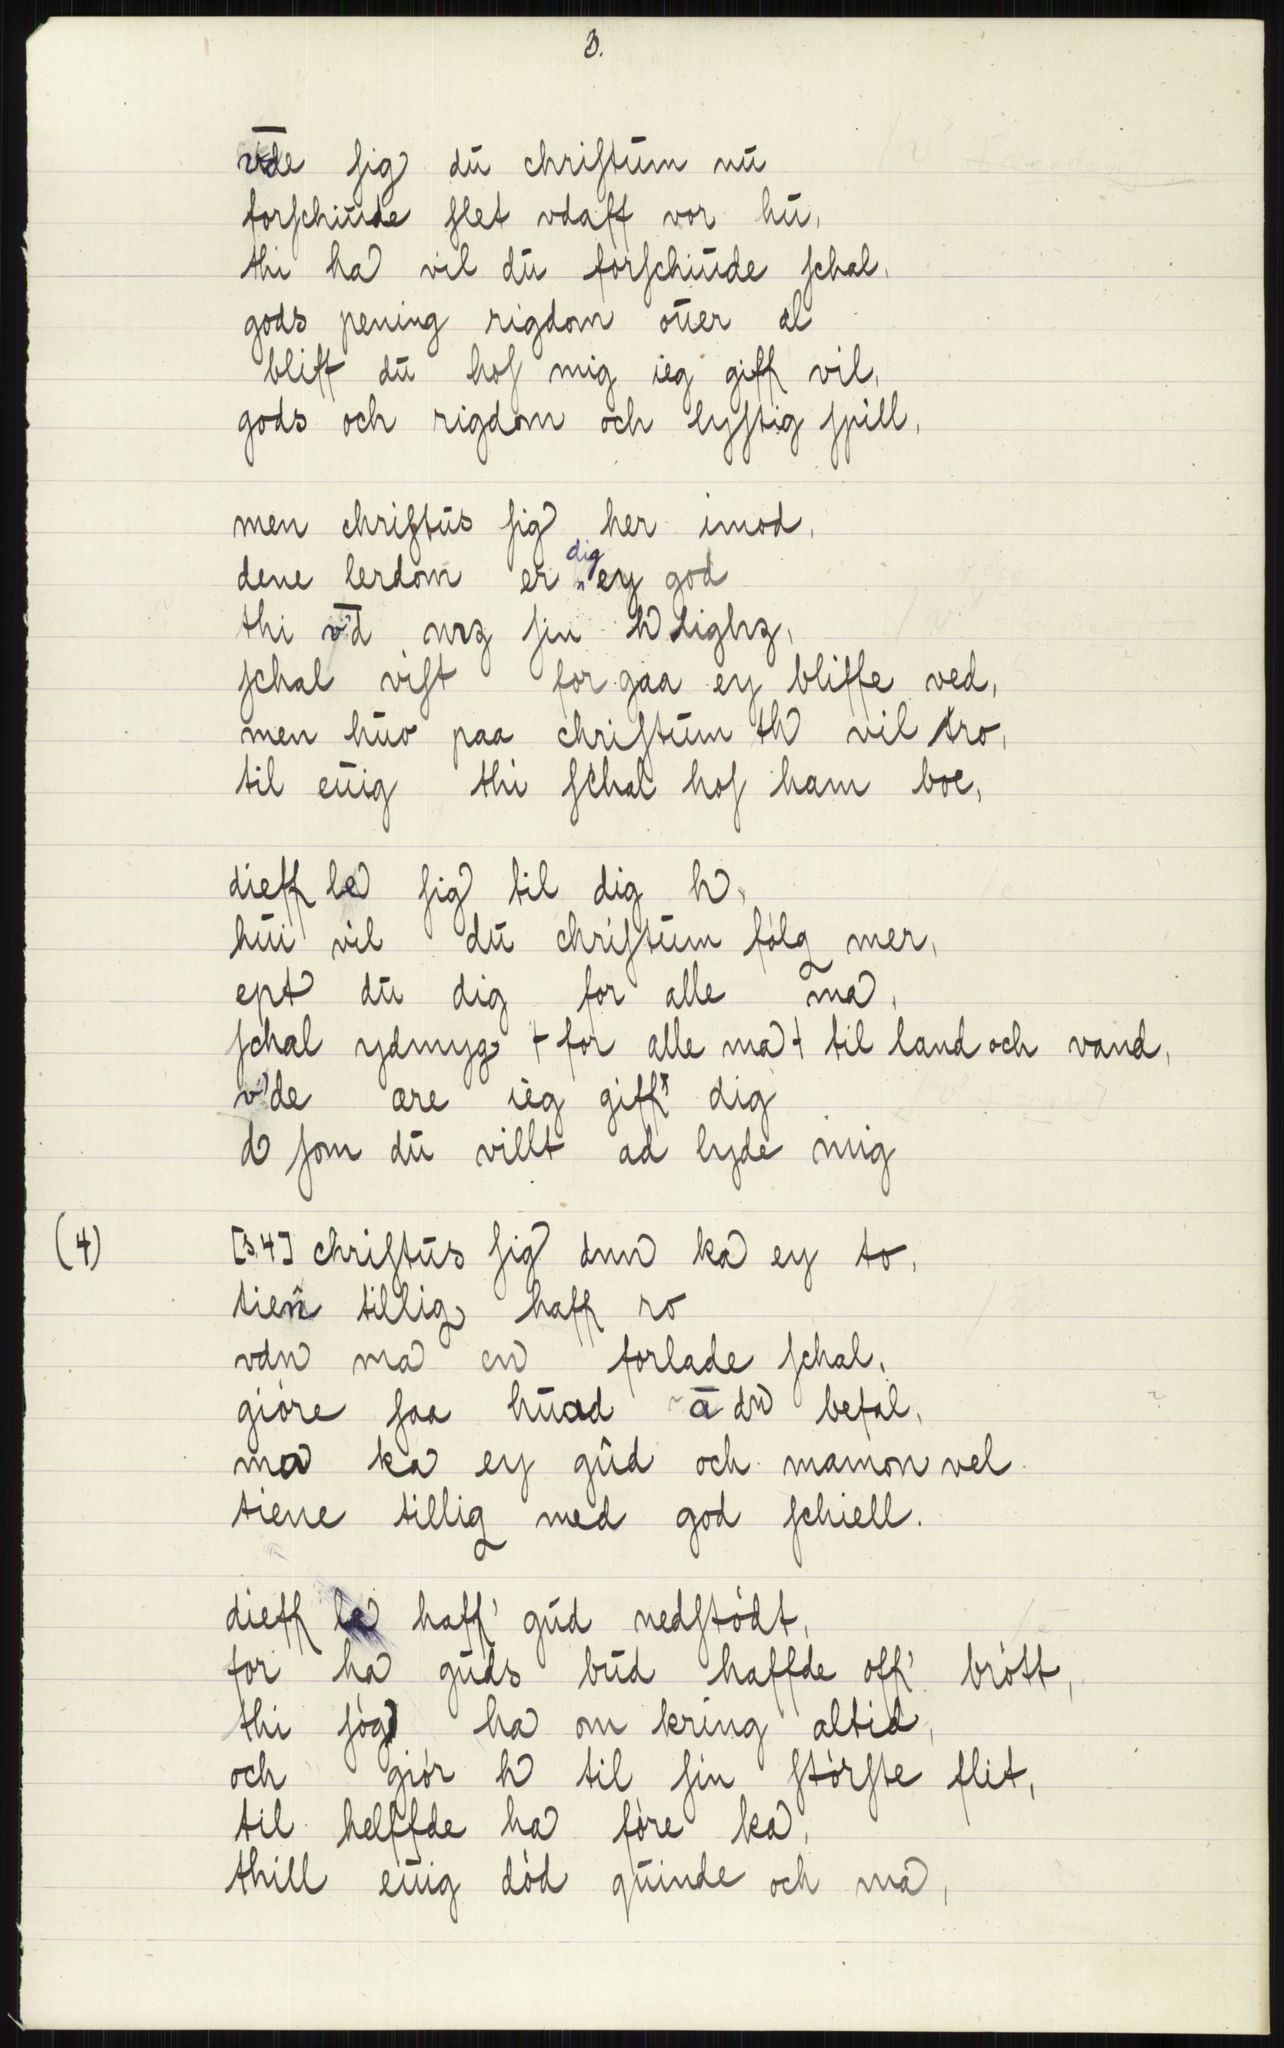 3.
v̄de ſig du chriſtūm nū
forſchiūde ſlet vdaff vor hū,
thi ha vil dū forſchiūde ſchal,
gods pening rigdom oūer al
bliff dū hoſ mig ieg giff vil,
gods och rigdom och lyſtig ſpill,
men chriſtūs ſig her imod,
dig
dene lerdom er ey god
thi v̄d ſin h lighz,
ſchal viſt for gaa ey bliffe ved,
men hūo paa chriſtūm th vil tro,
til eūig thi ſchal hoſ ham boe,
dieff le ſig til dig h,
hūi vil dū chriſtūm fólg mer,
ept dū dig for alle ma,
ſchal ydmyg + for alle ma + til land och vand,
vde ære ieg giff' dig
d ſom dū villt ad lyde mig
(4) [3.4] chriſtūs ſig ka ey to,
tien tillig haff ro
vdn ma en forlade ſchal,
gióre ſaa hūad ā dn befal,
ma ka ey gūd och mamon vel
tiene tillig med god ſchiell.
dieff le haff' gūd nedſtódt,
for ha gūds būd haffde off' brótt,
thi ſóg ha om kring altid,
och giór h til ſin ſtórſte flit,
til helffde ha fóre ka,
thill eūig dód qūinde och ma,